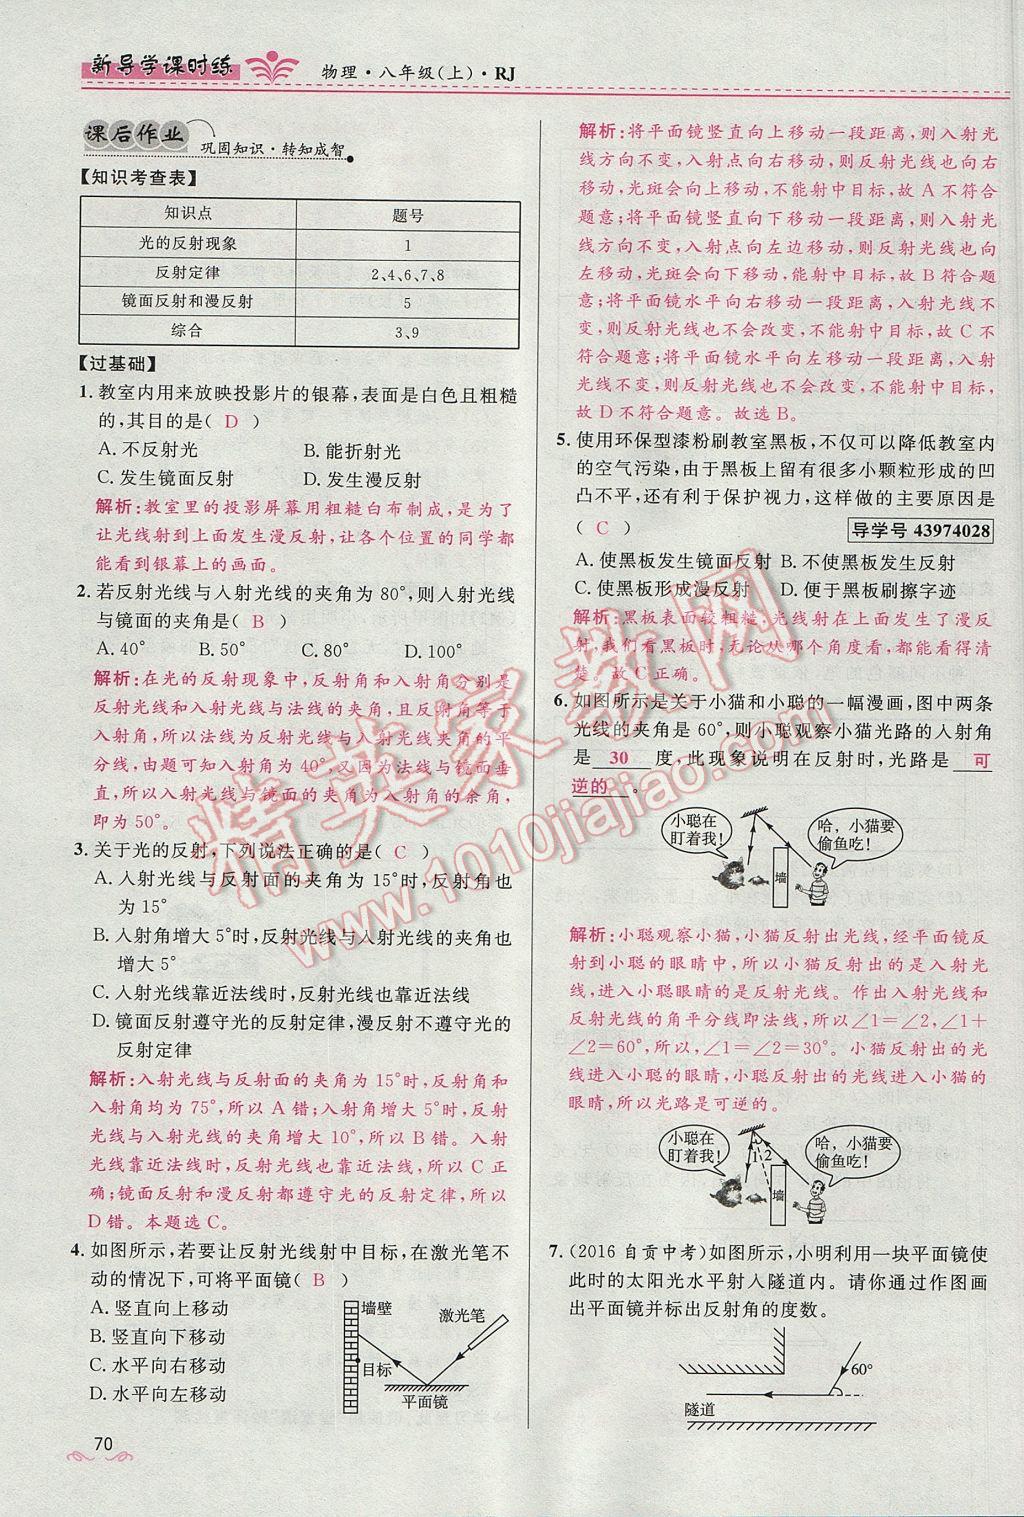 新导学课时练
物理·八年级(上)·RJ
课后作业
巩固知识·转知成智
【知识考查表】
知识点 题号
光的反射现象 1
反射定律 2、4、6、7、8
镜面反射和漫反射 5
综合 3、9
【过基础】
1. 教室内用来放映投影片的银幕,表面是白色且粗糙
的,其目的是( D )
A. 不反射光 B. 能折射光
C. 发生镜面反射 D. 发生漫反射
解析:教室里的投影屏幕用粗糙白布制成,是为了
让光线射到上面发生漫反射,让各个位置的同学都
能看到银幕上的画面。
2. 若反射光线与入射光线的夹角为80°,则入射光线
与镜面的夹角是( B )
A. 40° B. 50° C. 80° D. 100°
解析:在光的反射现象中,反射角和入射角分别是
反射光线和入射光线与法线的夹角,且反射角等于
入射角,所以法线为反射光线与入射光线夹角的平
分线,由题可知入射角为40°,又因为法线与镜面垂
直,所以入射光线与镜面的夹角为入射角的余角,
即为50°。
3. 关于光的反射,下列说法正确的是( C )
A. 入射光线与反射面的夹角为15°时,反射角也
为15°
B. 入射角增大5°时,反射光线与入射光线的夹角也
增大5°
C. 入射光线靠近法线时,反射光线也靠近法线
D. 镜面反射遵守光的反射定律,漫反射不遵守光的
反射定律
解析:入射光线与反射面的夹角为15°时,反射角和
入射角均为75°,所以A错;入射角增大5°时,反射
光线与入射光线的夹角增大10°,所以B错。入射
光线靠近法线时,反射光线也靠近法线,所以C正
确;镜面反射和漫反射都遵守光的反射定律,所以
D错。本题选C。
4. 如图所示,若要让反射光线射中目标,在激光笔不
动的情况下,可将平面镜( B )
A. 竖直向上移动
B. 竖直向下移动
C. 水平向右移动
D. 水平向左移动
墙壁
激光笔
目标
平面镜
70
解析:将平面镜竖直向上移动一段距离,则入射光
线方向不变,入射点向右移动,则反射光线也向右
移动,光斑会向上移动,不能射中目标,故A不符合
题意;将平面镜竖直向下移动一段距离,则入射光
线方向不变,入射点向左边移动,则反射光线也向
左移动,光斑会向下移动,能射中目标,故B符合题
意;将平面镜水平向右移动一段距离,入射光线不
变,则反射光线也不会改变,不能射中目标,故C不
符合题意;将平面镜水平向左移动一段距离,入射
光线不变,则反射光线也不会改变,不能射中目标,
故D不符合题意。故选B。
5. 使用环保型漆粉刷教室黑板,不仅可以降低教室内
的空气污染,由于黑板上留有很多小颗粒形成的凹
凸不平,还有利于保护视力,这样做的主要原因是
( C ) 导学号 43974028
A. 使黑板发生镜面反射 B. 不使黑板发生反射
C. 使黑板形成漫反射 D. 便于黑板刷擦字迹
解析:黑板表面较粗糙,光线射在上面发生了漫反
射,我们看黑板时,无论从哪个角度看,都能看得清
楚。故C正确。
6. 如图所示是关于小猫和小聪的一幅漫画,图中两条
光线的夹角是60°,则小聪观察小猫光路的入射角
是 30 度,此现象说明在反射时,光路是 可
逆的 。
小聪在
盯着我!
哈,小猫要
偷鱼吃!
墙
解析:小聪观察小猫,小猫反射出光线,经平面镜反
射到小聪的眼睛中,所以小猫反射出的是入射光
线,进入小聪眼睛的是反射光线。作出入射光线和
反射光线的角平分线即法线,所以∠1=∠2,∠1+
∠2=60°,所以,∠1=∠2=30°。小猫反射出的光
线进入小聪的眼睛,小聪反射出的光线进入小猫的
眼睛,所以光路是可逆的。
小聪在
盯着我!
1 2
哈,小猫要
偷鱼吃!
墙
7. (2016自贡中考)如图所示,小明利用一块平面镜使
此时的太阳光水平射入隧道内。请你通过作图画
出平面镜并标出反射角的度数。
60°
隧道
精英家教网
www.1010jiajiao.com